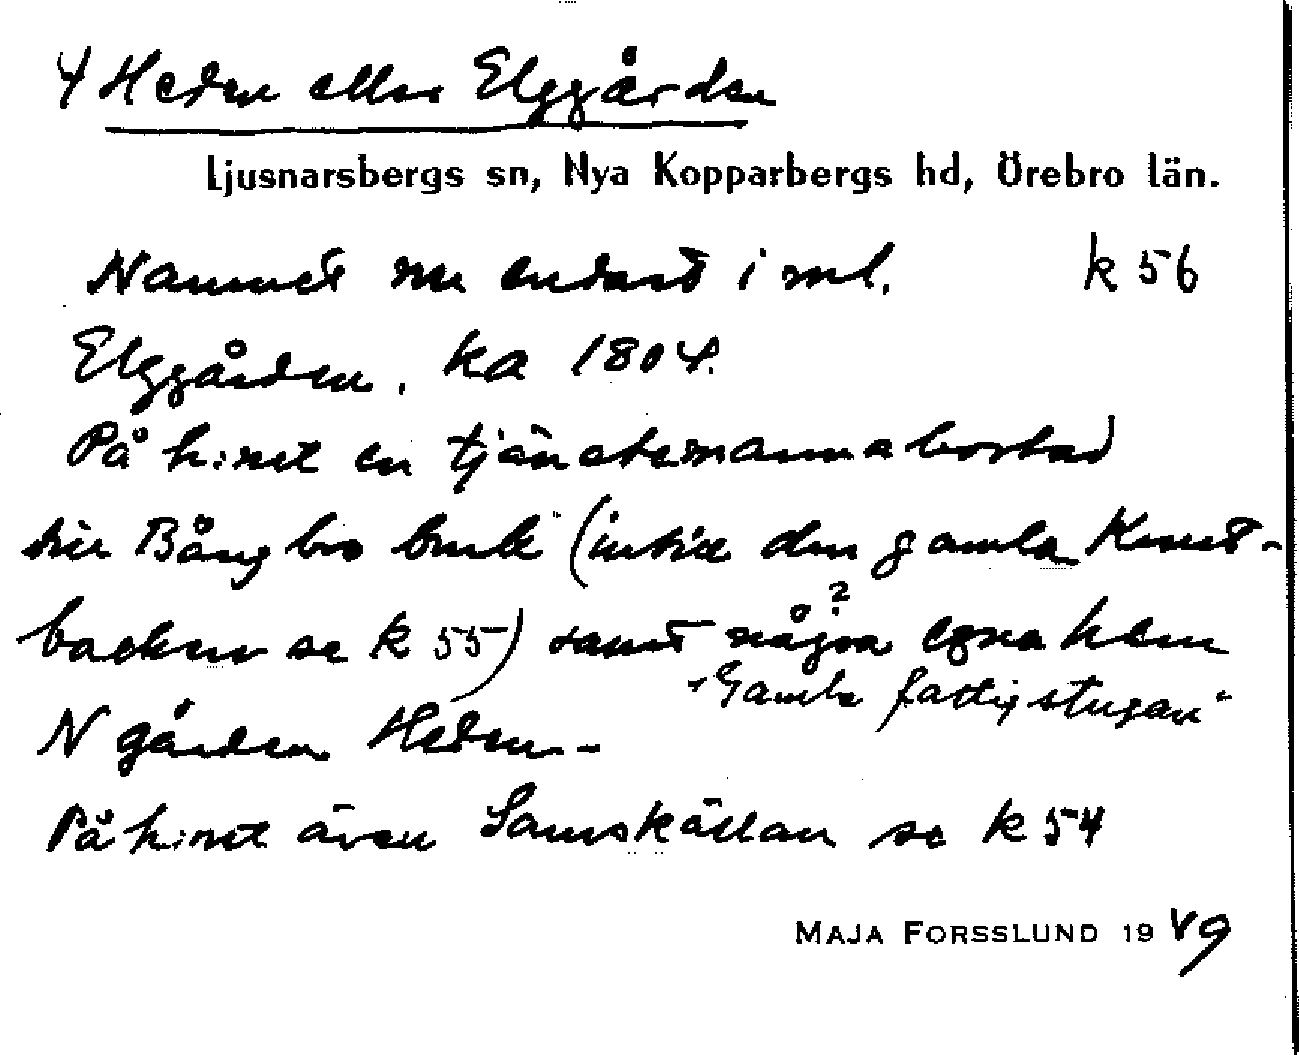 4 Heden eller Elggården
Ljusnarsbergs sn, Nya Kopparbergs hd, Örebro län.
Namnet nu endast i ml. k 56
Elggården, ka 1804.
På h:net en tjänstemannabostad
till Bångbro bruk (intill den gamla Kunst-
backen se k 55) samt några ? egna hem
"Gamla fattigstugan"
N gården Heden -
På h:net även Samskällan se k 54
MAJA FORSSLUND 1949